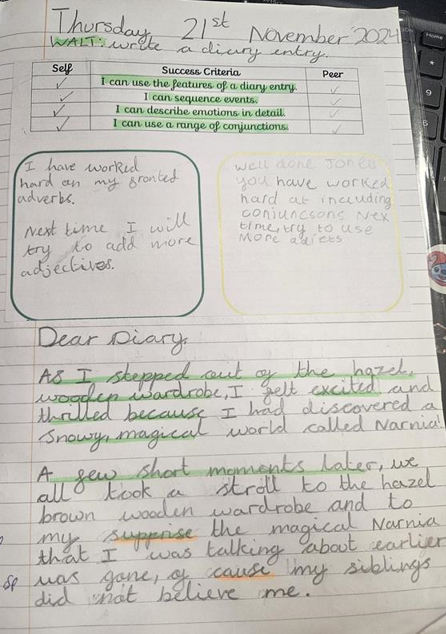 Thursday 21st November 2024
WALT: write a diary entry.
Self Success Criteria Peer
I can use the features of a diary entry.
I can sequence events.
I can describe emotions in detail.
I can use a range of conjunctions.
I have worked
hard on my fronted
adverbs.
Next time I will
try to add more
adjectives.
well done Jones
you have worked
hard at including
conjuncsons Nex
time, try to use
More adjets
Dear Diary,
As I stepped out of the hazel,
wooden wardrobe, I felt excited and
thrilled because I had discovered a
snowy, magical world called Narnia!
A few short moments later, we
all took a stroll to the hazel
brown wooden wardrobe and to
my supprise the magical Narnia
that I was talking about earlier
sp was gone, of cause my siblings
did not believe me.